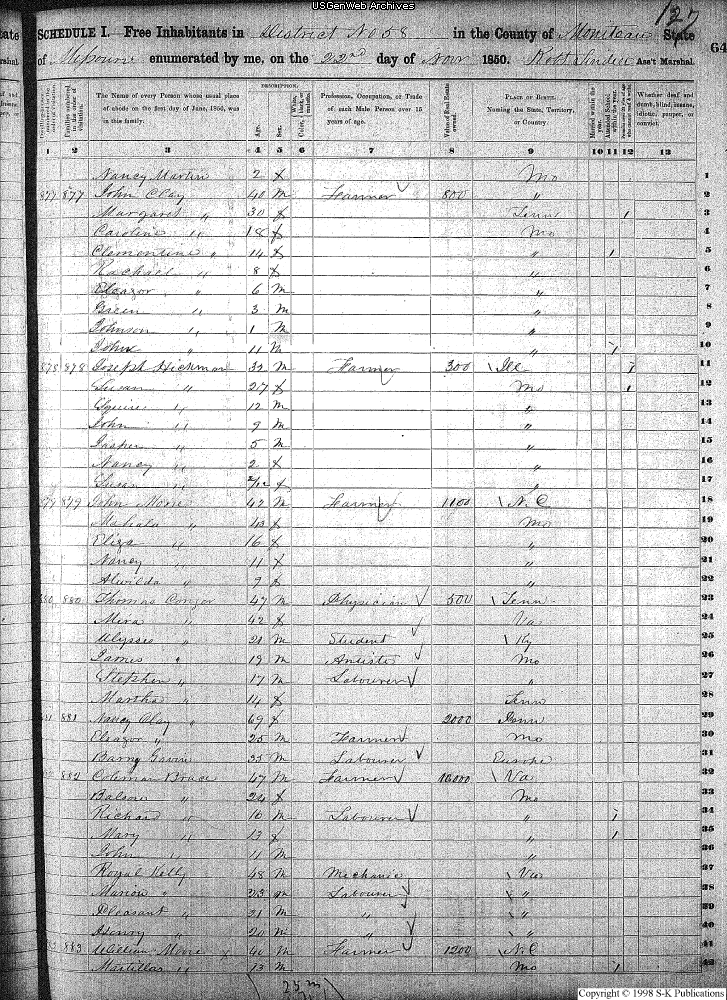 USGenWeb Archives
127
SCHEDULE I. Free Inhabitants in District No 58 in the County of Moniteau State
of Missouri enumerated by me, on the 22nd day of Novr 1850. Robt Ass't Marshal.
64
DESCRIPTION.
The Name of every Person whose usual place of abode on the first day of June, 1850, was in this family.
Age.
Sex.
Color,
Profession, Occupation, or Trade of each Male Person over 15 years of age.
Value of Real Estate owned.
PLACE OF BIRTH. Naming the State, Territory, or Country
Married within the year.
Attended School within the year.
Whether deaf and dumb, blind, insane, idiotic, pauper, or convict
1 2 3 4 5 6 7 8 9 10 11 12 13
Nancy Martin 2 f Mo 1
877 877 John Clay 40 m Farmer 800 " 2
Margaret " 30 f Tenn 1 3
Caroline " 18 f Mo 4
Clementine " 14 f " 1 5
Rachael " 8 f " 6
Eleazor " 6 m " 7
Green " 3 m " 8
Johnson " 1 m " 9
John " 11 m " 1 10
878 878 Joseph Hickman 32 m Farmer 300 Ill 1 11
Susan " 27 f Mo 1 12
Squire " 12 m " 13
John " 9 m " 14
Jasper " 5 m " 15
Nancy " 2 f " 16
Susan " 2/12 f " 17
879 879 John Moore 42 m Farmer 1100 N.C 18
Mahala " f Mo 19
Eliza " 16 f " 20
Nancy " 11 f " 21
Alwilda " 9 f " 22
880 880 Thomas Congor 47 m Physician 500 Tenn 23
Mira " 42 f Va 24
Ulysses " 21 m Student Ky 25
James " 19 m Mo 26
Stephen " 17 m Labourer " 27
Martha " 14 f Tenn 28
881 881 Nancy Clay " 69 f 2000 29
Eleazor " 25 m Farmer Mo 30
Barny 35 m Labourer Europe 31
882 882 Coleman Bruce 47 m Farmer 10000 Va 32
f Mo 33
Richard " 16 m Labourer " 1 34
Mary " 13 f " 1 35
John " 11 m " 36
Royal Kelly 48 m Mechanic Va 37
Marion " 23 m Labourer " 38
Pleasant " 21 m " " 39
Henry " 20 m " " 40
883 883 William Moore 40 m Farmer 1200 N.C 41
" 13 m Mo 1 42
Copyright © 1998 S-K Publications